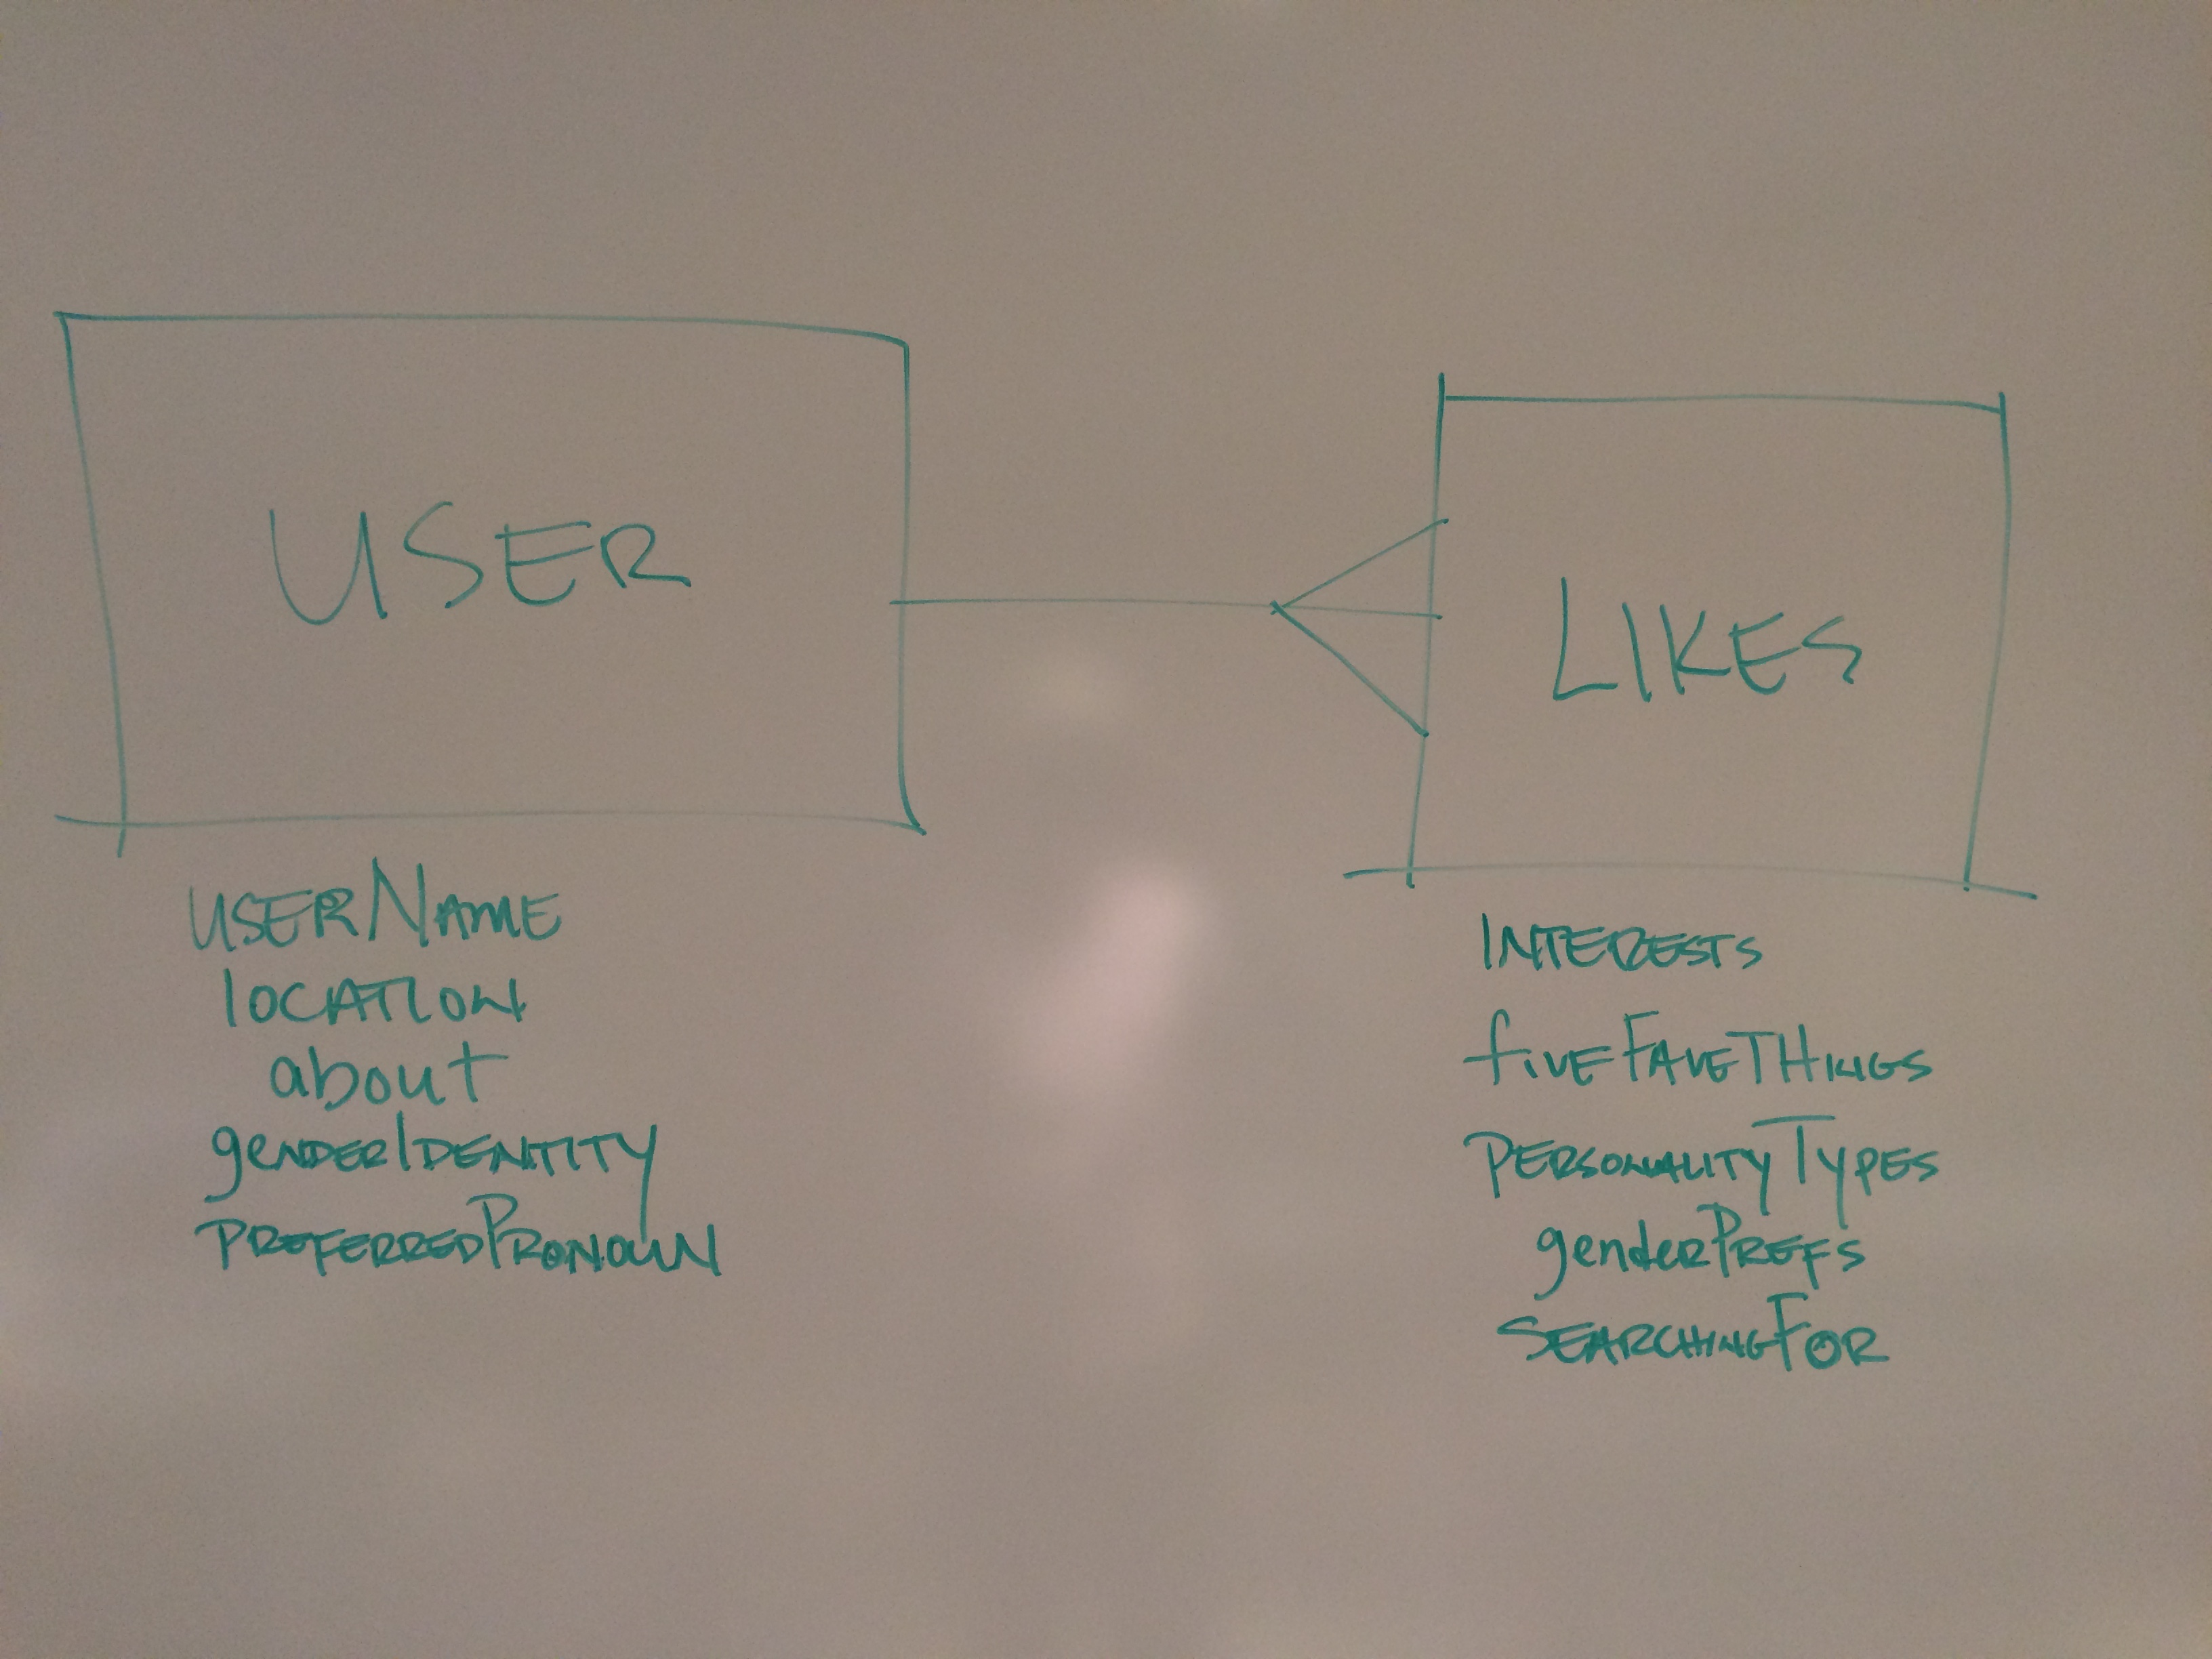 USER
LIKES
userName
location
about
genderIdentity
preferredPronoun
interests
fiveFaveThings
personalityTypes
genderPrefs
searchingFor